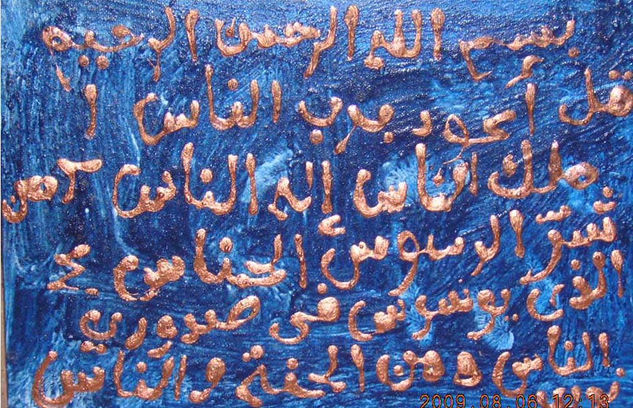 بسم الله الرحمن الرحيم
قل أعود برب الناس ١
ملك الناس إله الناس ٣ من
شرّ الوسوس الخناس ٤
الذى يوسوس فى صدورى
الناس ومن الجنة والناس
2009.08.06 12:13